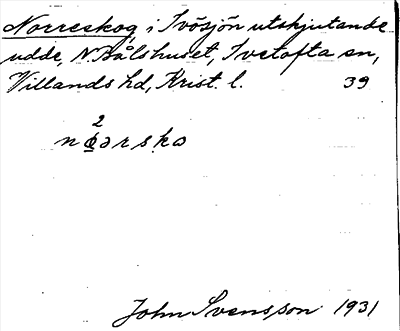 Norreskog, i Ivösjön utskjutande
udde, N. Bålshuset, Ivetofta sn,
Villands hd, Krist. l. 39
2
John Svensson 1931